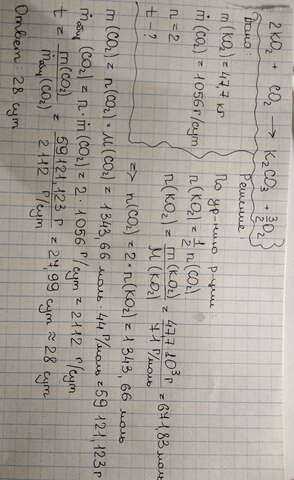 2KO₂ + CO₂ → K₂CO₃ + 3/2 O₂
Дано:
m(KO₂) = 47,7 кг
ṁ(CO₂) = 1056 г/сут
n = 2
t - ?
Решение
По ур-нию р-ции:
n(KO₂) = 1/2 n(CO₂)
n(KO₂) = m(KO₂)/M(KO₂) = 47,7·10³ г/71 г/моль = 671,83 моль
=> n(CO₂) = 2·n(KO₂) = 1343,66 моль
m(CO₂) = n(CO₂)·M(CO₂) = 1343,66 моль · 44 г/моль = 59 121,123 г
ṁ (CO₂) = n·ṁ(CO₂) = 2 · 1056 г/сут = 2112 г/сут
t = m(CO₂)/ṁ (CO₂) = 59 121,123 г/2112 г/сут = 27,99 сут ≈ 28 сут
Ответ: 28 сут